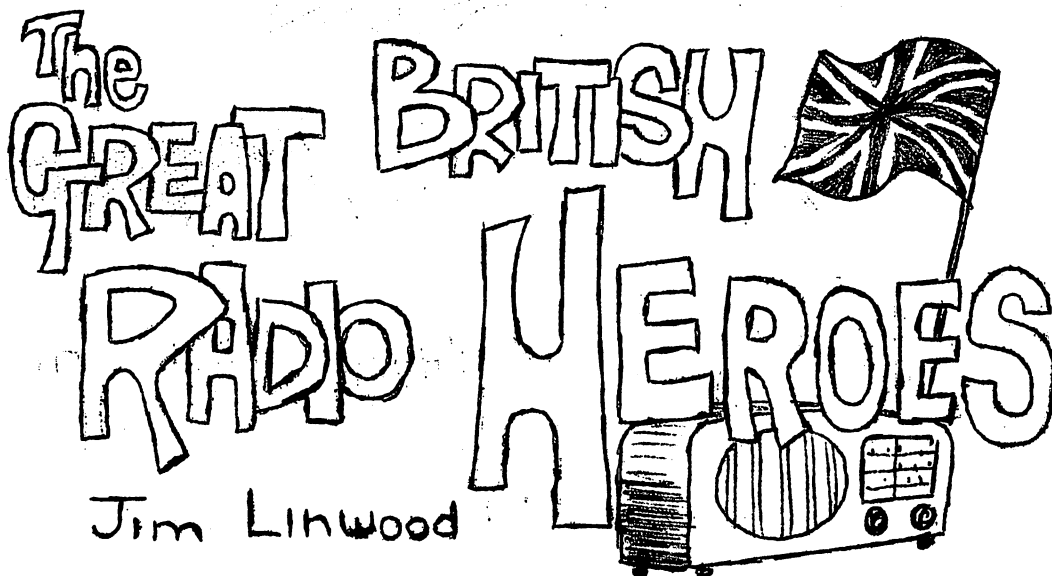 The
GREAT BRITISH
RADIO HEROES
Jim Linwood